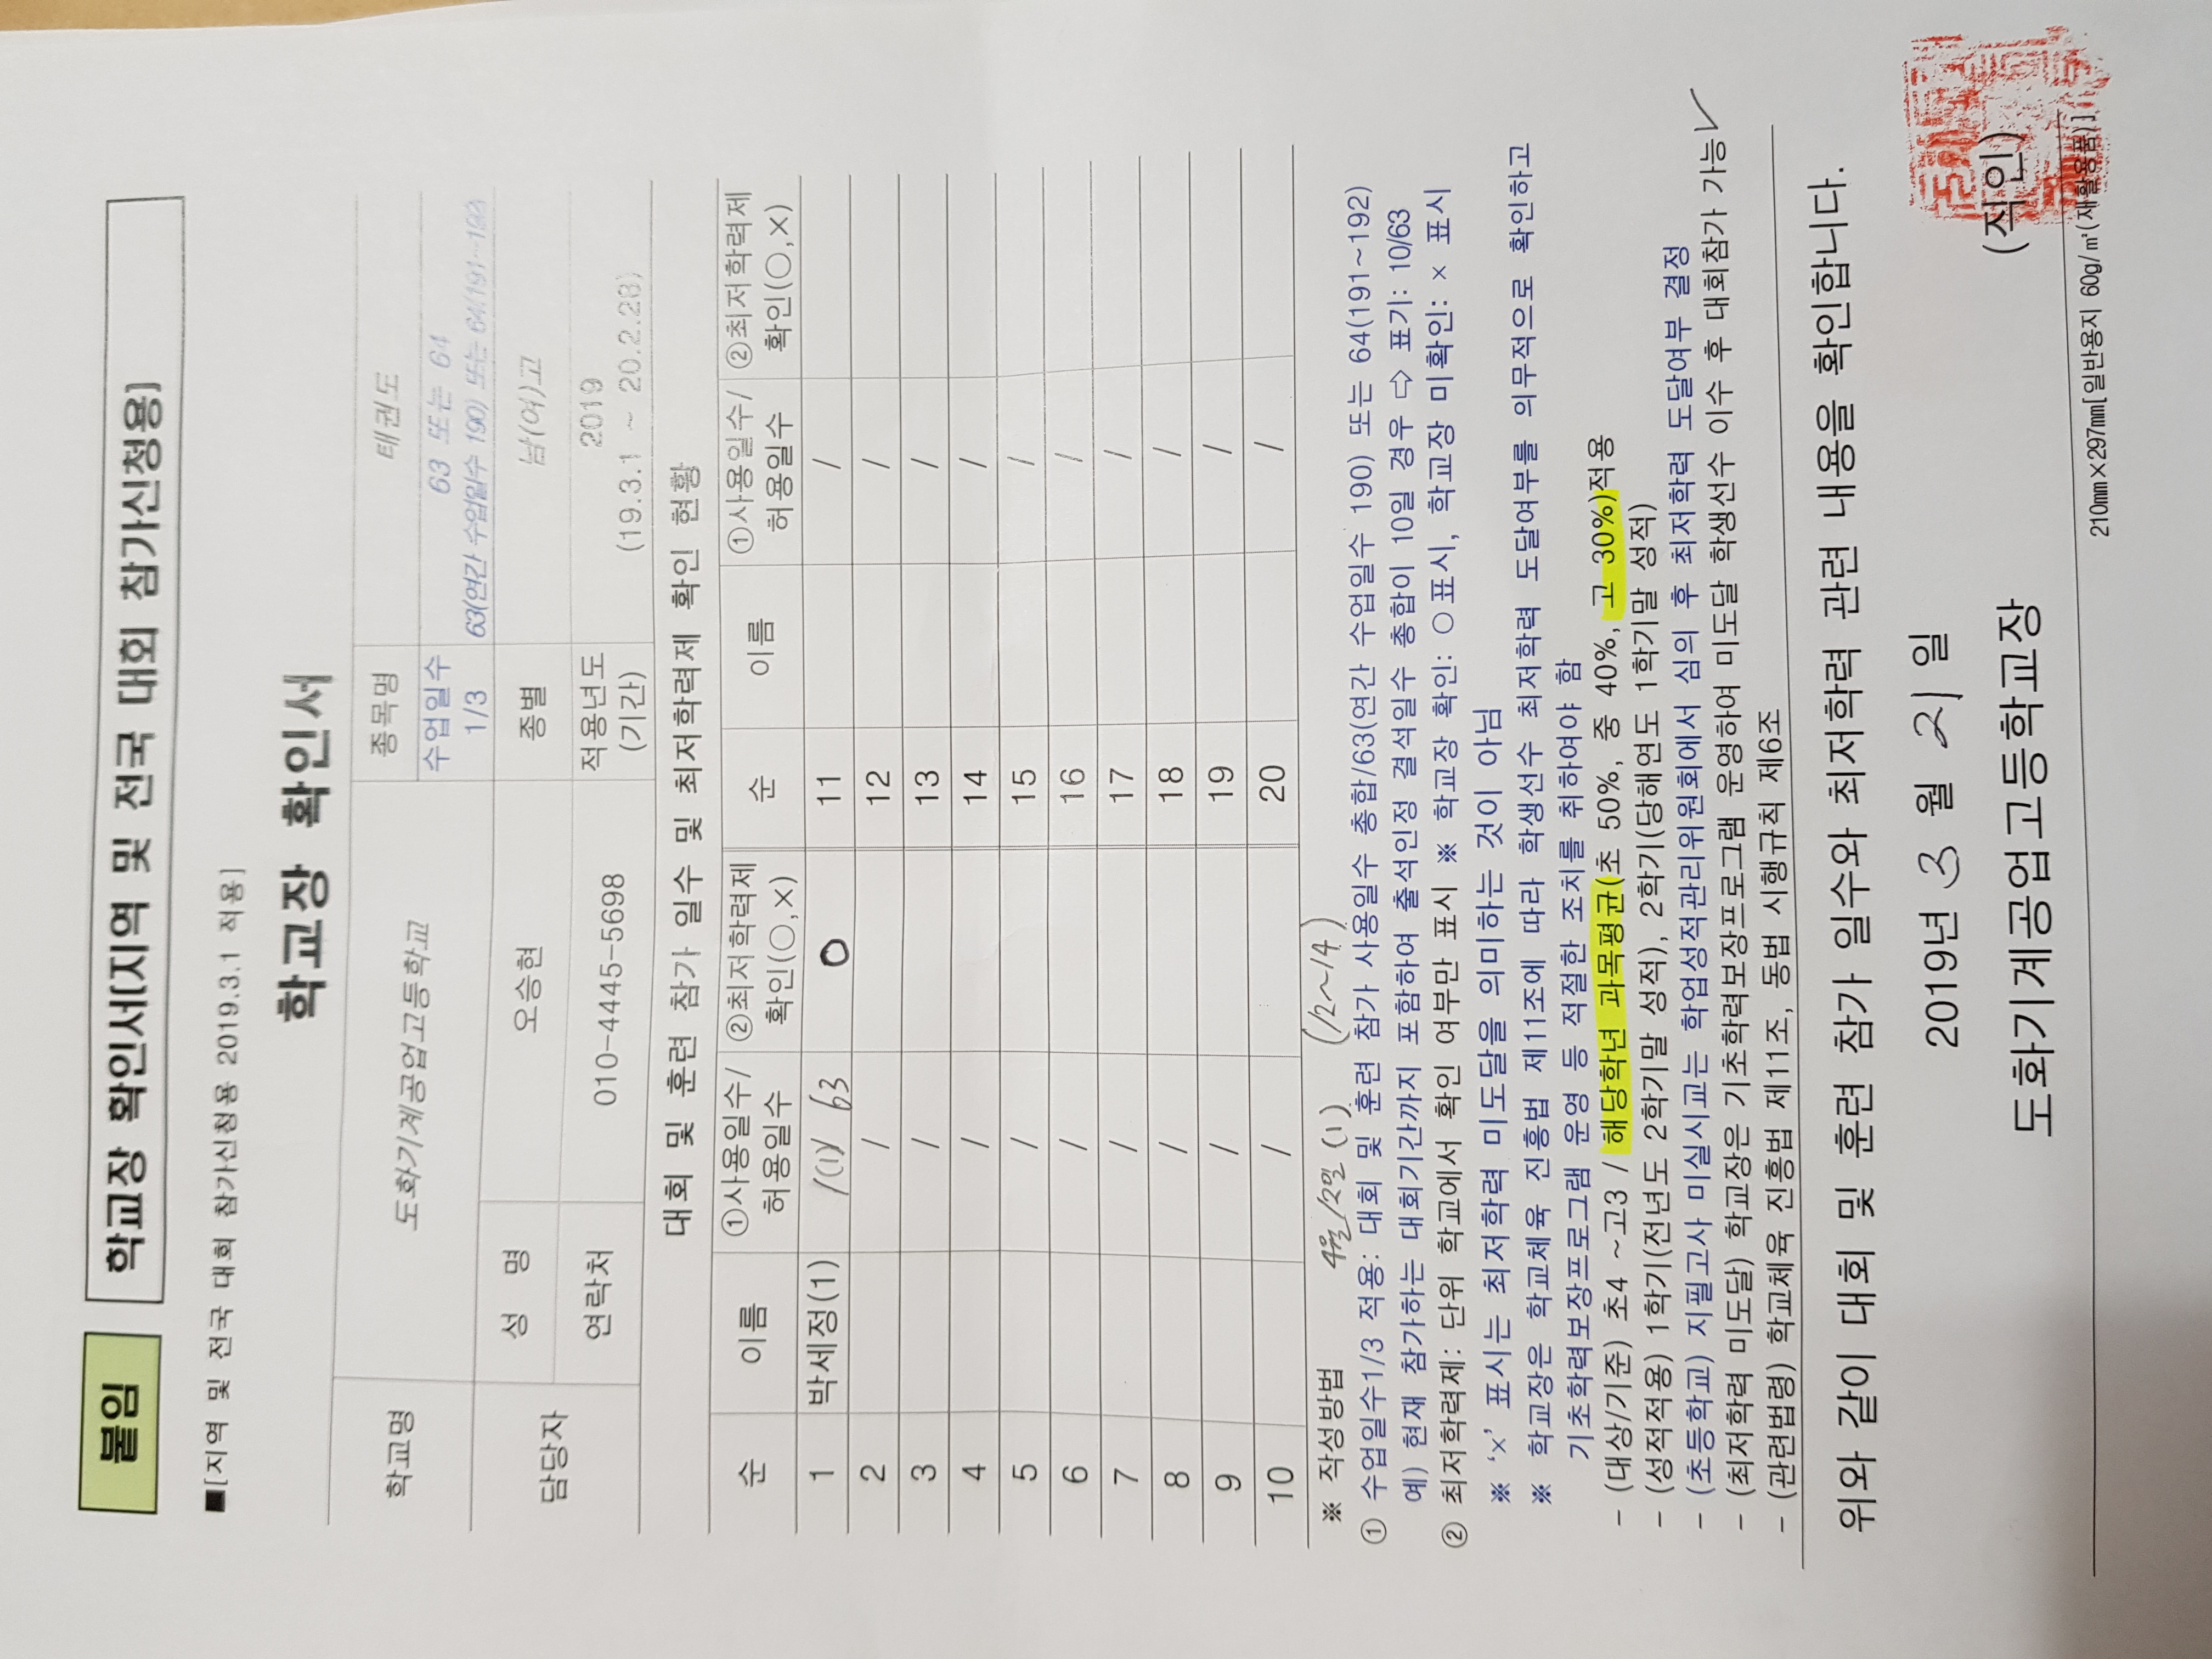 붙임 학교장 확인서(지역 및 전국 대회 참가신청용)
■[지역 및 전국 대회 참가신청용 2019.3.1 적용]
학교장 확인서
학교명 도화기계공업고등학교 종목명 태권도
수업일수 1/3 63 또는 64
63(연간 수업일수 190) 또는 64(191~192)
담당자 성 명 오승현 종별 남(여)고
연락처 010-4445-5698 적용년도 (기간) 2019
(19.3.1 ~ 20.2.28)
대회 및 훈련 참가 일수 및 최저학력제 확인 현황
순 이름 ①사용일수/허용일수 ②최저학력제 확인(○,×) 순 이름 ①사용일수/허용일수 ②최저학력제 확인(○,×)
1 박세정(1) 1(1)/ 63 O 11 /
2 / 12 /
3 / 13 /
4 / 14 /
5 / 15 /
6 / 16 /
7 / 17 /
8 / 18 /
9 / 19 /
10 / 20 /
※ 작성방법 4월12일 (1) (12~14)
① 수업일수1/3 적용: 대회 및 훈련 참가 사용일수 총합/63(연간 수업일수 190) 또는 64(191~192)
예) 현재 참가하는 대회기간까지 포함하여 출석인정 결석일수 총합이 10일 경우 ⇨ 표기: 10/63
② 최저학력제: 단위 학교에서 확인 여부만 표시 ※ 학교장 확인: ○표시, 학교장 미확인: × 표시
※ ‘×’ 표시는 최저학력 미도달을 의미하는 것이 아님
※ 학교장은 학교체육 진흥법 제11조에 따라 학생선수 최저학력 도달여부를 의무적으로 확인하고
기초학력보장프로그램 운영 등 적절한 조치를 취하여야 함
- (대상/기준) 초4 ~고3 / 해당학년 과목평균(초 50%, 중 40%, 고 30%)적용
- (성적적용) 1학기(전년도 2학기말 성적), 2학기(당해연도 1학기말 성적)
- (초등학교) 지필고사 미실시교는 학업성적관리위원회에서 심의 후 최저학력 도달여부 결정
- (최저학력 미도달) 학교장은 기초학력보장프로그램 운영하여 미도달 학생선수 이수 후 대회참가 가능✓
- (관련법령) 학교체육 진흥법 제11조, 동법 시행규칙 제6조
위와 같이 대회 및 훈련 참가 일수와 최저학력 관련 내용을 확인합니다.
2019년 3 월 21 일
도화기계공업고등학교장 (직인)
210㎜×297㎜[일반용지 60g/㎡(재활용품)]